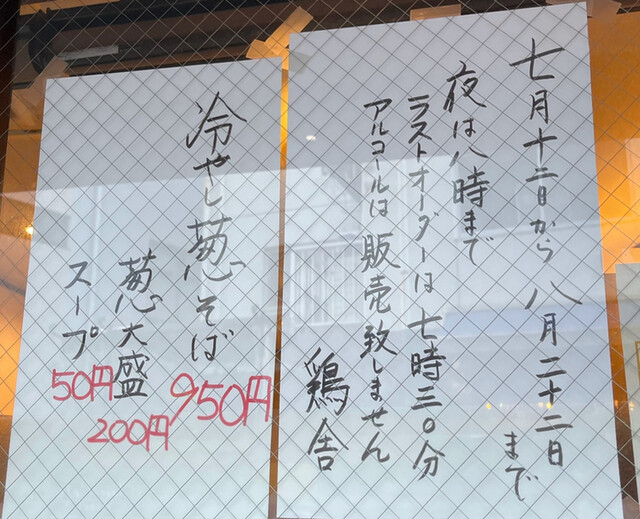 七月十二日から八月二十二日まで
夜は八時まで
ラストオーダーは七時三〇分
アルコールは販売致しません
鶏舎
冷やし葱そば 950円
葱大盛 200円
スープ 50円